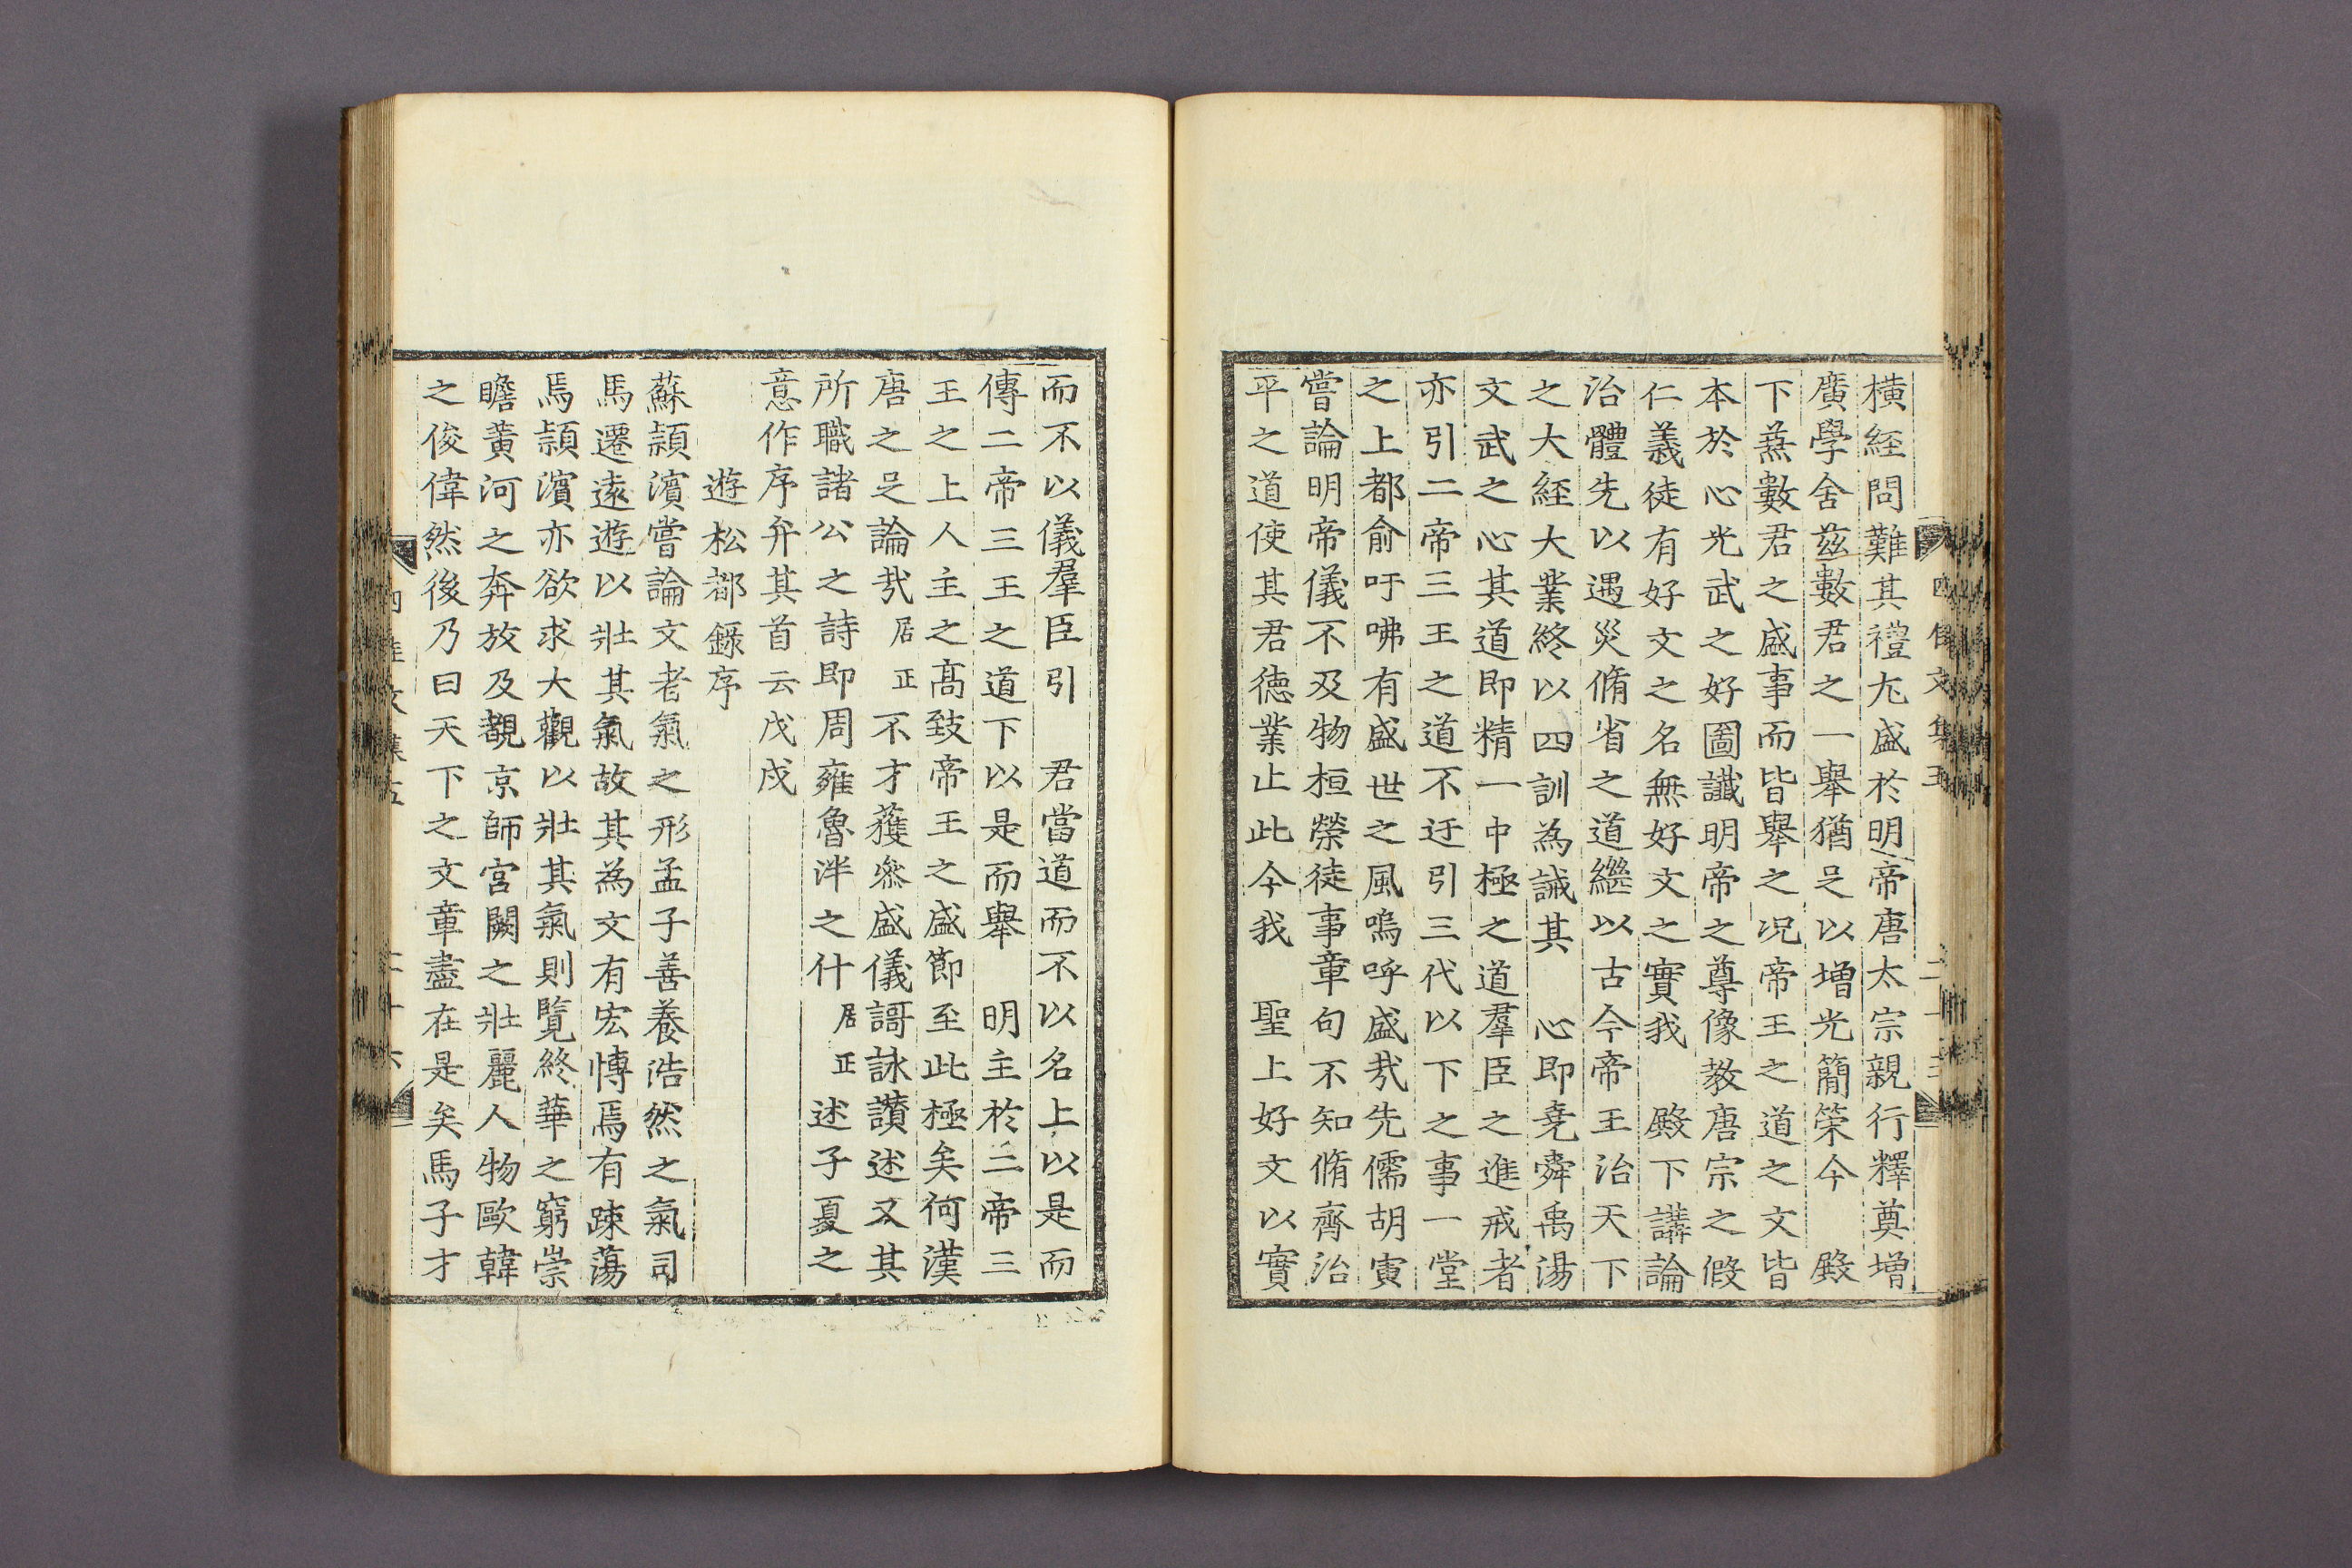 橫経問難其禮尢盛於明帝唐太宗親行釋奠增
廣學舍茲數君之一舉猶足以增光簡策今 殿
下蕪數君之盛事而皆舉之况帝王之道之文皆
本於心光武之好圖讖明帝之尊像教唐宗之假
仁義徒有好文之名無好文之實我 殿下講論
治體先以遇災脩省之道繼以古今帝王治天下
之大経大業終以四訓為誡其 心即堯舜禹湯
文武之心其道即精一中極之道羣臣之進戒者
亦引二帝三王之道不迂引三代以下之事一堂
之上都俞吁咈有盛世之風嗚呼盛㢤先儒胡寅
嘗論明帝儀不及物桓榮徒事章句不知脩齊治
平之道使其君德業止此今我 聖上好文以實
四佳文集五
而不以儀羣臣引 君當道而不以名上以是而
傳二帝三王之道下以是而舉 明主於二帝三
王之上人主之髙致帝王之盛節至此極矣何漢
唐之足論㢤居正不才獲叅盛儀謌詠讚述又其
所職諸公之詩即周雍魯泮之什居正述子夏之
意作序弁其首云戊戌
遊松都錄序
蘇頴濱嘗論文者氣之形孟子善養浩然之氣司
馬遷遠遊以壯其氣故其為文有宏愽焉有踈蕩
焉頴濱亦欲求大觀以壯其氣則覽終華之窮崇
瞻黄河之奔放及覩京師宮闕之壯麗人物歐韓
之俊偉然後乃曰天下之文章盡在是矣馬子才